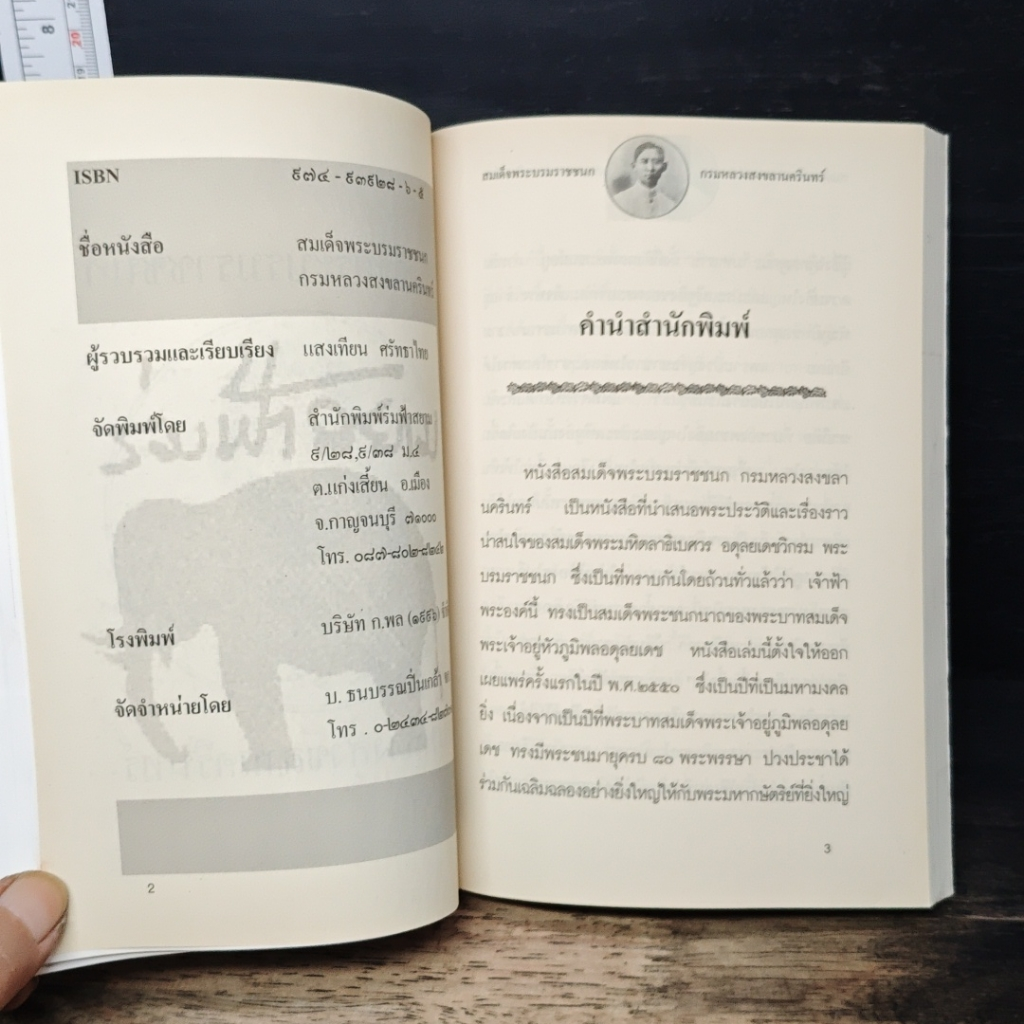 8
20
19
ISBN ๙๗๔ - ๙๓๙๒๘ - ๖ - ๕
ชื่อหนังสือ สมเด็จพระบรมราชชนก
กรมหลวงสงขลานครินทร์
ผู้รวบรวมและเรียบเรียง แสงเทียน ศรัทธาไทย
จัดพิมพ์โดย สำนักพิมพ์ร่มฟ้าสยาม
๙/๒๘,๙/๓๘ ม.๔
ต.แก่งเสี้ยน อ.เมือง
จ.กาญจนบุรี ๗๑๐๐๐
โทร.
โรงพิมพ์ บริษัท ก.พล (๑๙๙๖)
จัดจำหน่ายโดย บ. ธนบรรณปิ่นเกล้า
โทร .
ร่มฟ้าสยาม
2
สมเด็จพระบรมราชชนก กรมหลวงสงขลานครินทร์
คำนำสำนักพิมพ์
หนังสือสมเด็จพระบรมราชชนก กรมหลวงสงขลา
นครินทร์ เป็นหนังสือที่นำเสนอพระประวัติและเรื่องราว
น่าสนใจของสมเด็จพระมหิตลาธิเบศวร อดุลยเดชวิกรม พระ
บรมราชชนก ซึ่งเป็นที่ทราบกันโดยถ้วนทั่วแล้วว่า เจ้าฟ้า
พระองค์นี้ ทรงเป็นสมเด็จพระชนกนาถของพระบาทสมเด็จ
พระเจ้าอยู่หัวภูมิพลอดุลยเดช หนังสือเล่มนี้ตั้งใจให้ออก
เผยแพร่ครั้งแรกในปี พ.ศ.๒๕๕๐ ซึ่งเป็นปีที่เป็นมหามงคล
ยิ่ง เนื่องจากเป็นปีที่พระบาทสมเด็จพระเจ้าอยู่ภูมิพลอดุลย
เดช ทรงมีพระชนมายุครบ ๘๐ พระพรรษา ปวงประชาได้
ร่วมกันเฉลิมฉลองอย่างยิ่งใหญ่ให้กับพระมหากษัตริย์ที่ยิ่งใหญ่
3